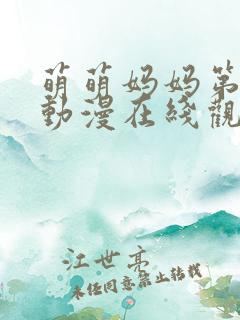 萌萌妈妈第
動漫在綫觀
江世亮
未经同意禁止转载